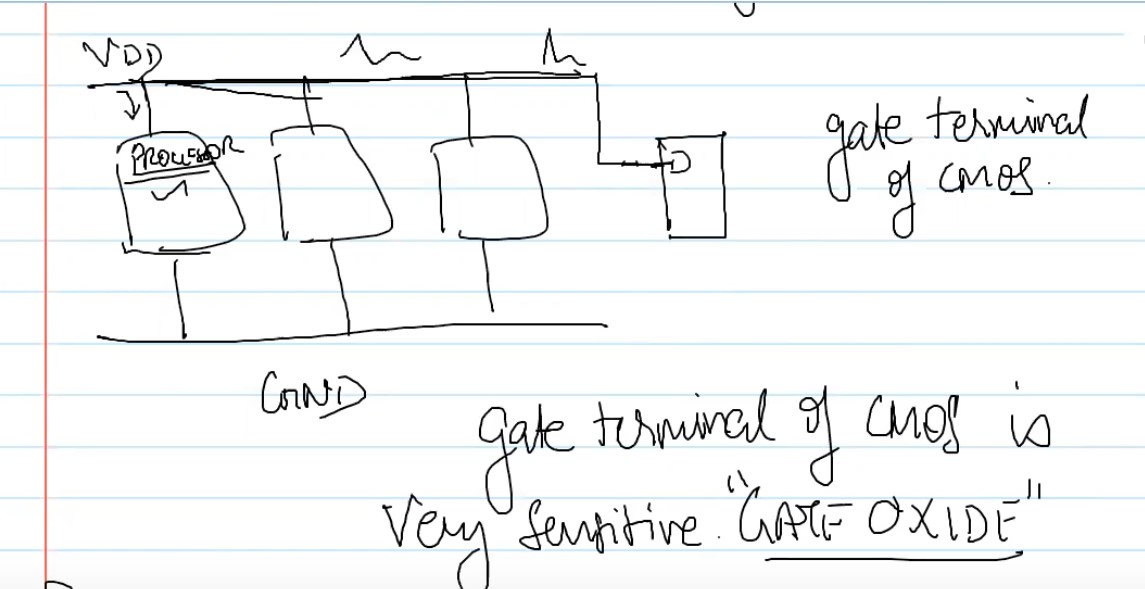 VDD
PROCESSOR
D
gate terminal
of CMOS.
GND
gate terminal of CMOS is
Very Sensitive. "GATE OXIDE"